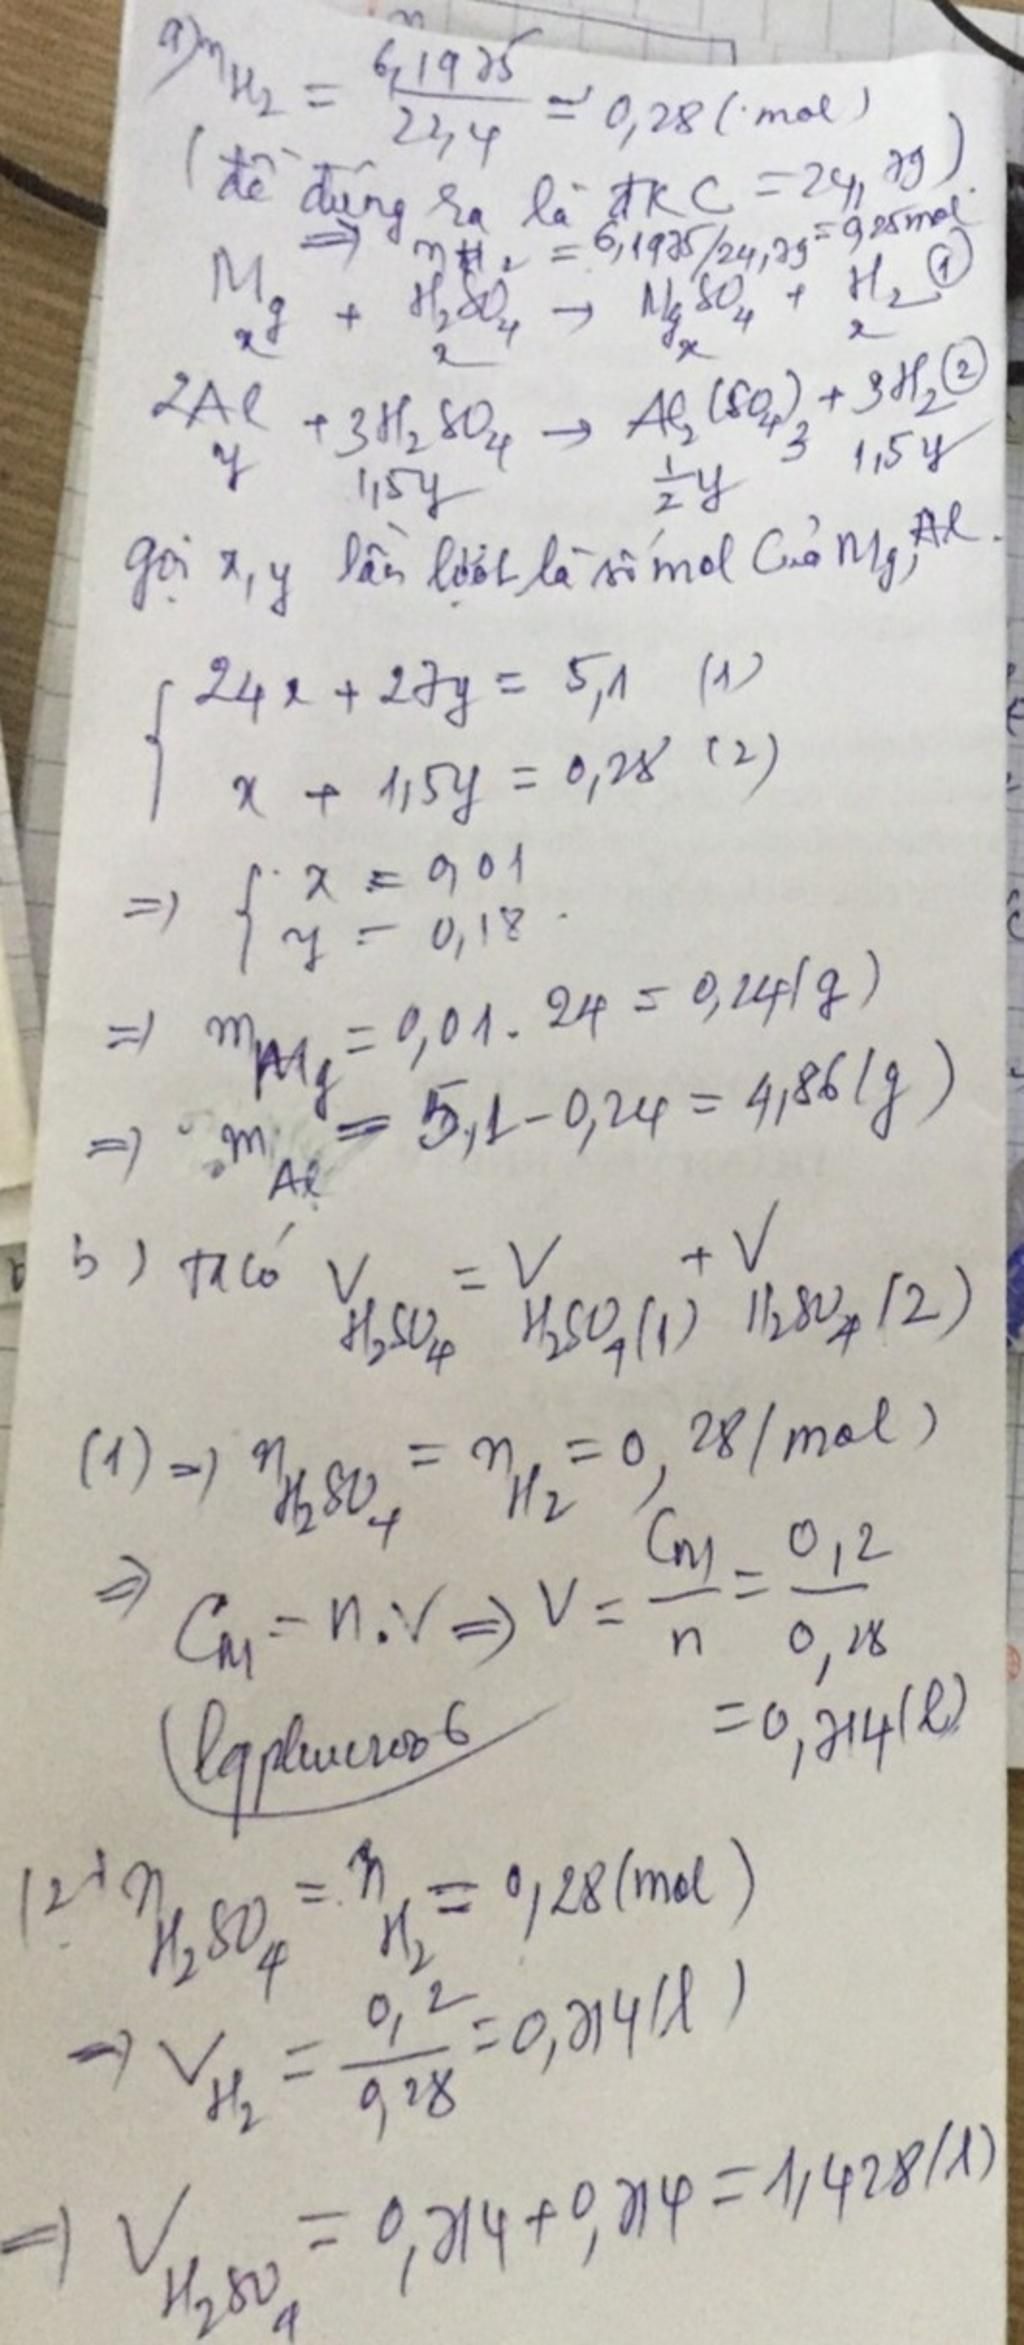 a) nH₂ = 6,1975/22,4 = 0,28 (mol)
(đề đúng ra là ĐKC = 24,79)
⇒ nH₂ = 6,1975/24,79 = 0,25 mol
Mg + H₂SO₄ → MgSO₄ + H₂ ①
x x x x
2Al + 3H₂SO₄ → Al₂(SO₄)₃ + 3H₂ ②
y 1,5y 1/2y 1,5y
gọi x, y lần lượt là số mol của Mg, Al.
24x + 27y = 5,1 (1)
x + 1,5y = 0,28 (2)
=> { x = 0,01
y = 0,18.
=> mMg = 0,01 . 24 = 0,24(g)
=> mAl = 5,1 - 0,24 = 4,86(g)
b) Ta có V H₂SO₄ = V H₂SO₄(1) + V H₂SO₄(2)
(1) => nH₂SO₄ = nH₂ = 0,28(mol)
=> CM = n.V => V = CM/n = 0,2/0,28
= 0,714(l)
(2) nH₂SO₄ = nH₂ = 0,28(mol)
=> VH₂ = 0,2/0,28 = 0,714(l)
=> V H₂SO₄ = 0,714 + 0,714 = 1,428(l)